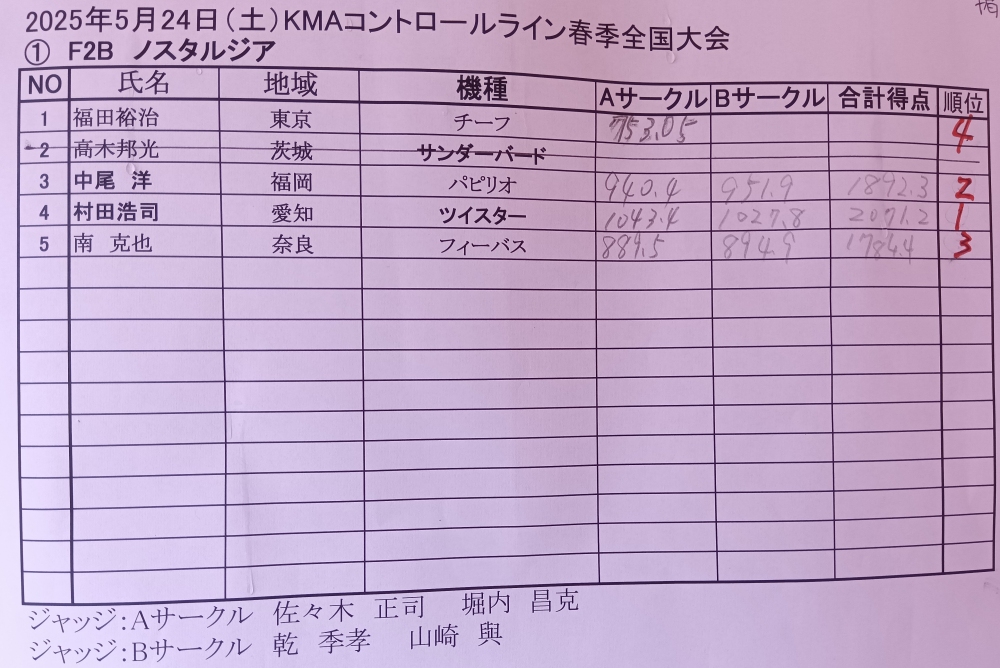 2025年5月24日(土)KMAコントロールライン春季全国大会
① F2B ノスタルジア
NO 氏名 地域 機種 Aサークル Bサークル 合計得点 順位
1 福田裕治 東京 チーフ 753.05 4
2 高木邦光 茨城 サンダーバード
3 中尾 洋 福岡 パピリオ 940.4 951.9 1892.3 2
4 村田浩司 愛知 ツイスター 1043.4 1027.8 2071.2 1
5 南 克也 奈良 フィーバス 889.5 894.9 1784.4 3
ジャッジ:Aサークル 佐々木 正司 堀内 昌克
ジャッジ:Bサークル 乾 季孝 山崎 與